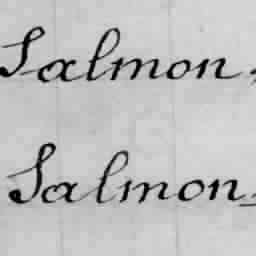 Salmon,
Salmon